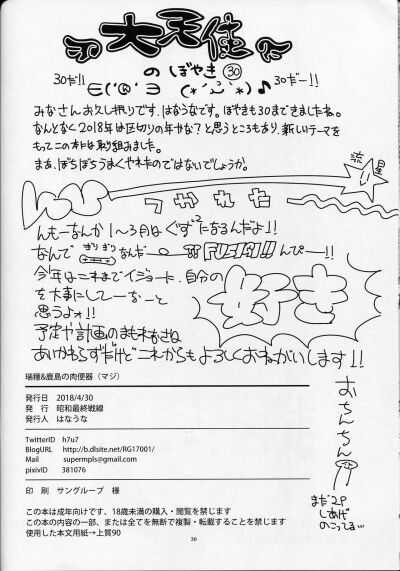 大天使
のぼやき㉚
30だ!!
30だー!!
みなさんお久し振りです。はなうなです。ぼやきも30まできましたね。
なんとなく2018年は区切りの年かな?と思うところもあり、新しいテーマを
もってこの本は取り組みました。
まぁ、ぼちぼちうまくやれたのではないでしょうか。
流星
つかれた
んもーなんか1〜3月はぐずぐずになるんだよ!!
なんで ぎりぎりなんだ
んぴー!!
今年はこれまでイジョーに、自分の
好き
を大事にしてーなーと
思うよォ!!
予定や計画の
あいかわらずだけどこれからもよろしくおねがいします!!
おちんちん
まだ2P
しあげ
のこってる…
瑞穂&鹿島の肉便器(マジ)
発行日 2018/4/30
発行 昭和最終戦線
発行人 はなうな
TwitterID h7u7
BlogURL http://b.dlsite.net/RG17001/
Mail supermpls@gmail.com
pixivID 381076
印刷 サングループ 様
この本は成年向けです、18歳未満の購入・閲覧を禁じます
この本の内容の一部、または全てを無断で複製・転載することを禁じます
使用した本文用紙→上質90
30